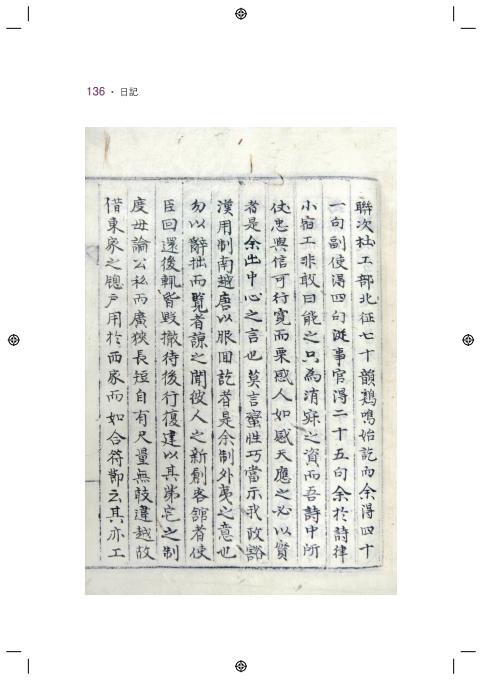 136 · 日記
聯次杜工部北征七十韻鷄鳴始訖而余得四十
一句副使得四句從事官得二十五句余於詩律
小宿工非敢曰能之只為消寂之資而吾詩中所
仗忠與信可行寬而栗感人如感天應之必以實
者是余出中心之言也莫言蠻性巧當示我政豁
漢用制南越唐以服回訖者是余制外夷之意也
勿以辭拙而覽者諒之聞彼人之新創客舘者使
臣回還後輒皆毀撤待後行復建以其第宅之制
度毋論公私而廣狹長短自有尺量無敢違越故
借東家之牕戶用於西家而如合符節云其亦工